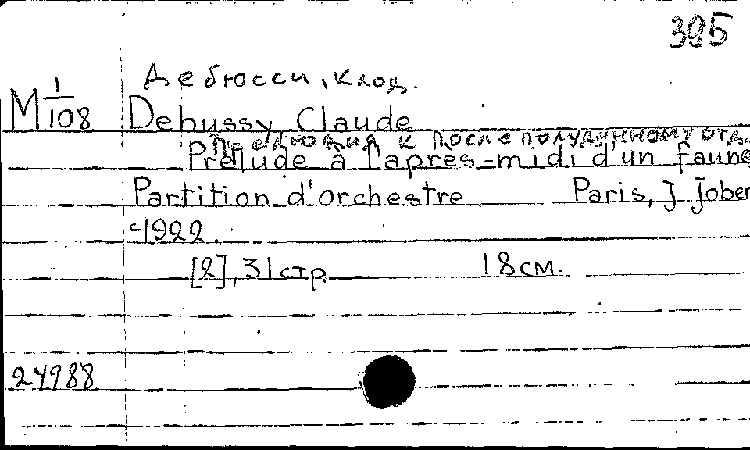 305
Дебюсси, Клод.
M 1/108 Debussy, Claude
Прелюдия к послеполуденному отд
Prélude à l'après-midi d'un faune
Partition d'orchestre Paris, J. Jober
c1922.
[2], 31 стр. 18 см.
24988